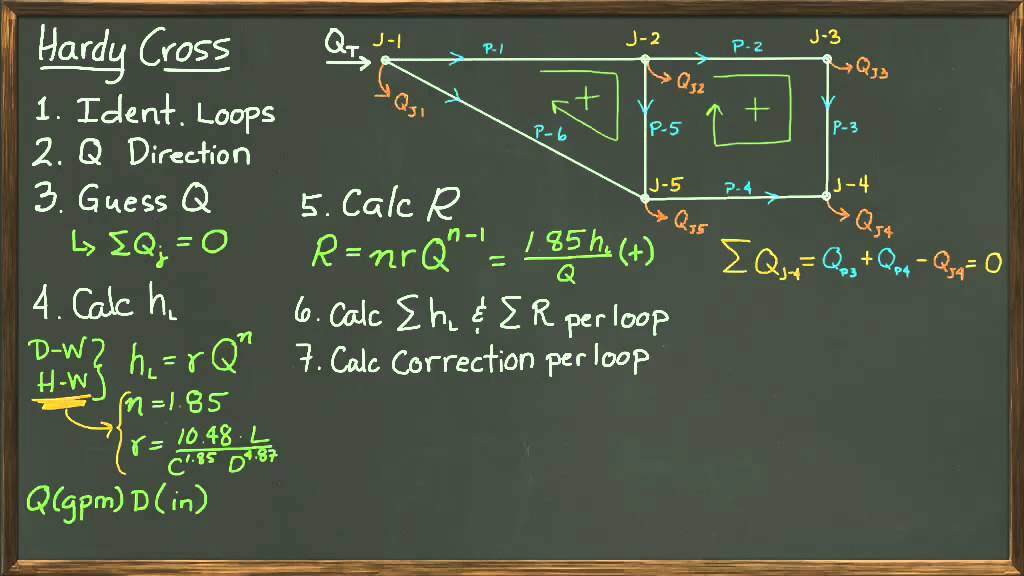 Hardy Cross
1. Ident. Loops
2. Q Direction
3. Guess Q
↳ ΣQj = 0
4. Calc hL
D-W } hL = r Q^n
H-W
n = 1.85
r = 10.48 · L / C^1.85 D^4.87
Q(gpm) D(in)
QT
J-1
P-1
J-2
P-2
J-3
QJ1
QJ2
QJ3
+
+
P-6
P-5
P-3
J-5
P-4
J-4
QJ5
QJ4
ΣQJ-4 = QP3 + QP4 - QJ4 = 0
5. Calc R
R = nrQ^n-1 = 1.85hL / Q (+)
6. Calc ΣhL & ΣR per loop
7. Calc Correction per loop